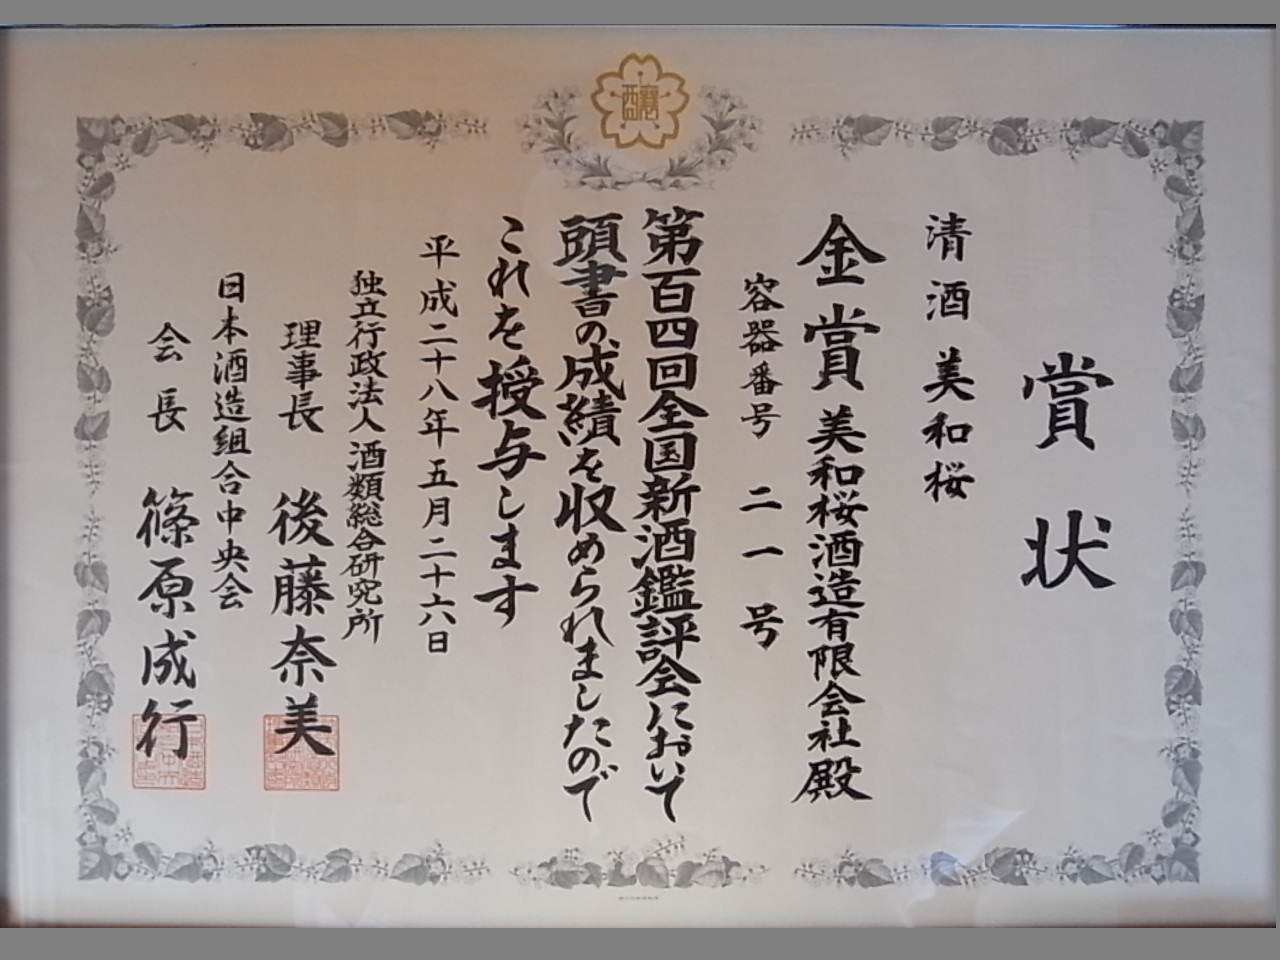 醸
賞状
清酒 美和桜
金賞 美和桜酒造有限会社殿
容器番号 二一号
第百四回全国新酒鑑評会において
頭書の成績を収められましたので
これを授与します
平成二十八年五月二十六日
独立行政法人 酒類総合研究所
理事長 後藤奈美
日本酒造組合中央会
会長 篠原成行